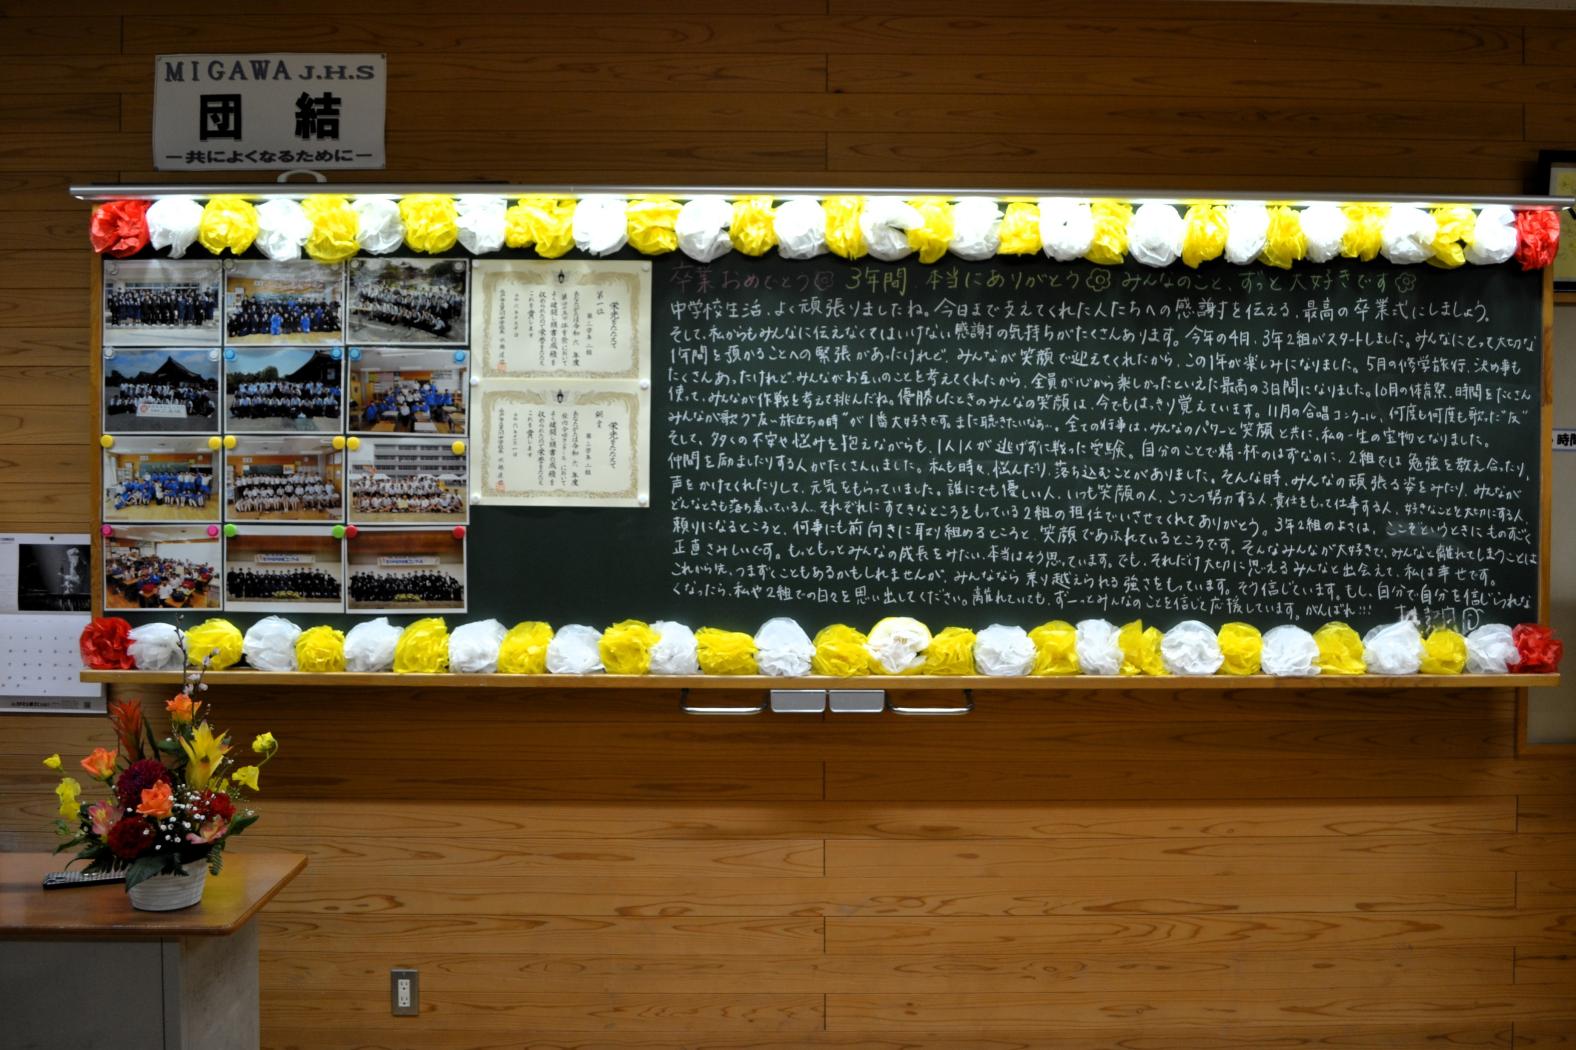 MIGAWA J.H.S
団結
―共によくなるために―
卒業おめでとう 3年間 本当にありがとう みんなのこと、ずっと大好きです
中学校生活、よく頑張りましたね。今日まで支えてくれた人たちへの感謝を伝える、最高の卒業式にしましょう。
そして、私からもみんなに伝えなくてはいけない感謝の気持ちがたくさんあります。今年の4月、3年2組がスタートしました。みんなにとって大切な
1年間を預かることへの緊張があったけれど、みんなが笑顔で迎えてくれたから、この1年が楽しみになりました。5月の修学旅行、決め事も
たくさんあったけれど、みんながお互いのことを考えてくれたから、全員が心から楽しかったといえた最高の3日間になりました。10月の体育祭、時間をたくさん
使って、みんなが作戦を考えて挑んだね。優勝したときのみんなの笑顔は、今でもはっきり覚えています。11月の合唱コンクール、何度も何度も歌った"友"
みんなが歌う"友〜旅立ちの時"が1番大好きです。また聴きたいなあ。全ての行事は、みんなのパワーと笑顔と共に、私の一生の宝物となりました。
そして、多くの不安と悩みを抱えながらも、1人1人が逃げずに戦った受験。自分のことで精一杯のはずなのに、2組では勉強を教え合ったり、
仲間を励ましたりする人がたくさんいました。私も時々、悩んだり、落ち込むことがありました。そんな時、みんなの頑張る姿をみたり、みんなが
声をかけてくれたりして、元気をもらっていました。誰にでも優しい人、いつも笑顔の人、こつこつ努力する人、責任をもって仕事する人、好きなことを大切にする人、
どんなときも落ち着いている人、それぞれにすてきなところをもっている2組の担任でいさせてくれてありがとう。3年2組のよさは、ここぞというときにものすごく
頼りになるところと、何事にも前向きに取り組めるところと、笑顔であふれているところです。そんなみんなが大好きで、みんなと離れてしまうことは
正直さみしいです。もっともっとみんなの成長をみたい、本当はそう思っています。でも、それだけ大切に思えるみんなと出会えて、私は幸せです。
これから先、つまずくこともあるかもしれませんが、みんななら乗り越えられる強さをもっています。そう信じています。もし、自分で自分を信じられな
くなったら、私や2組での日々を思い出してください。離れていても、ずーっとみんなのことを信じて応援しています。がんばれ!!!
栄光をたたえて
第一位
栄光をたたえて
銅賞